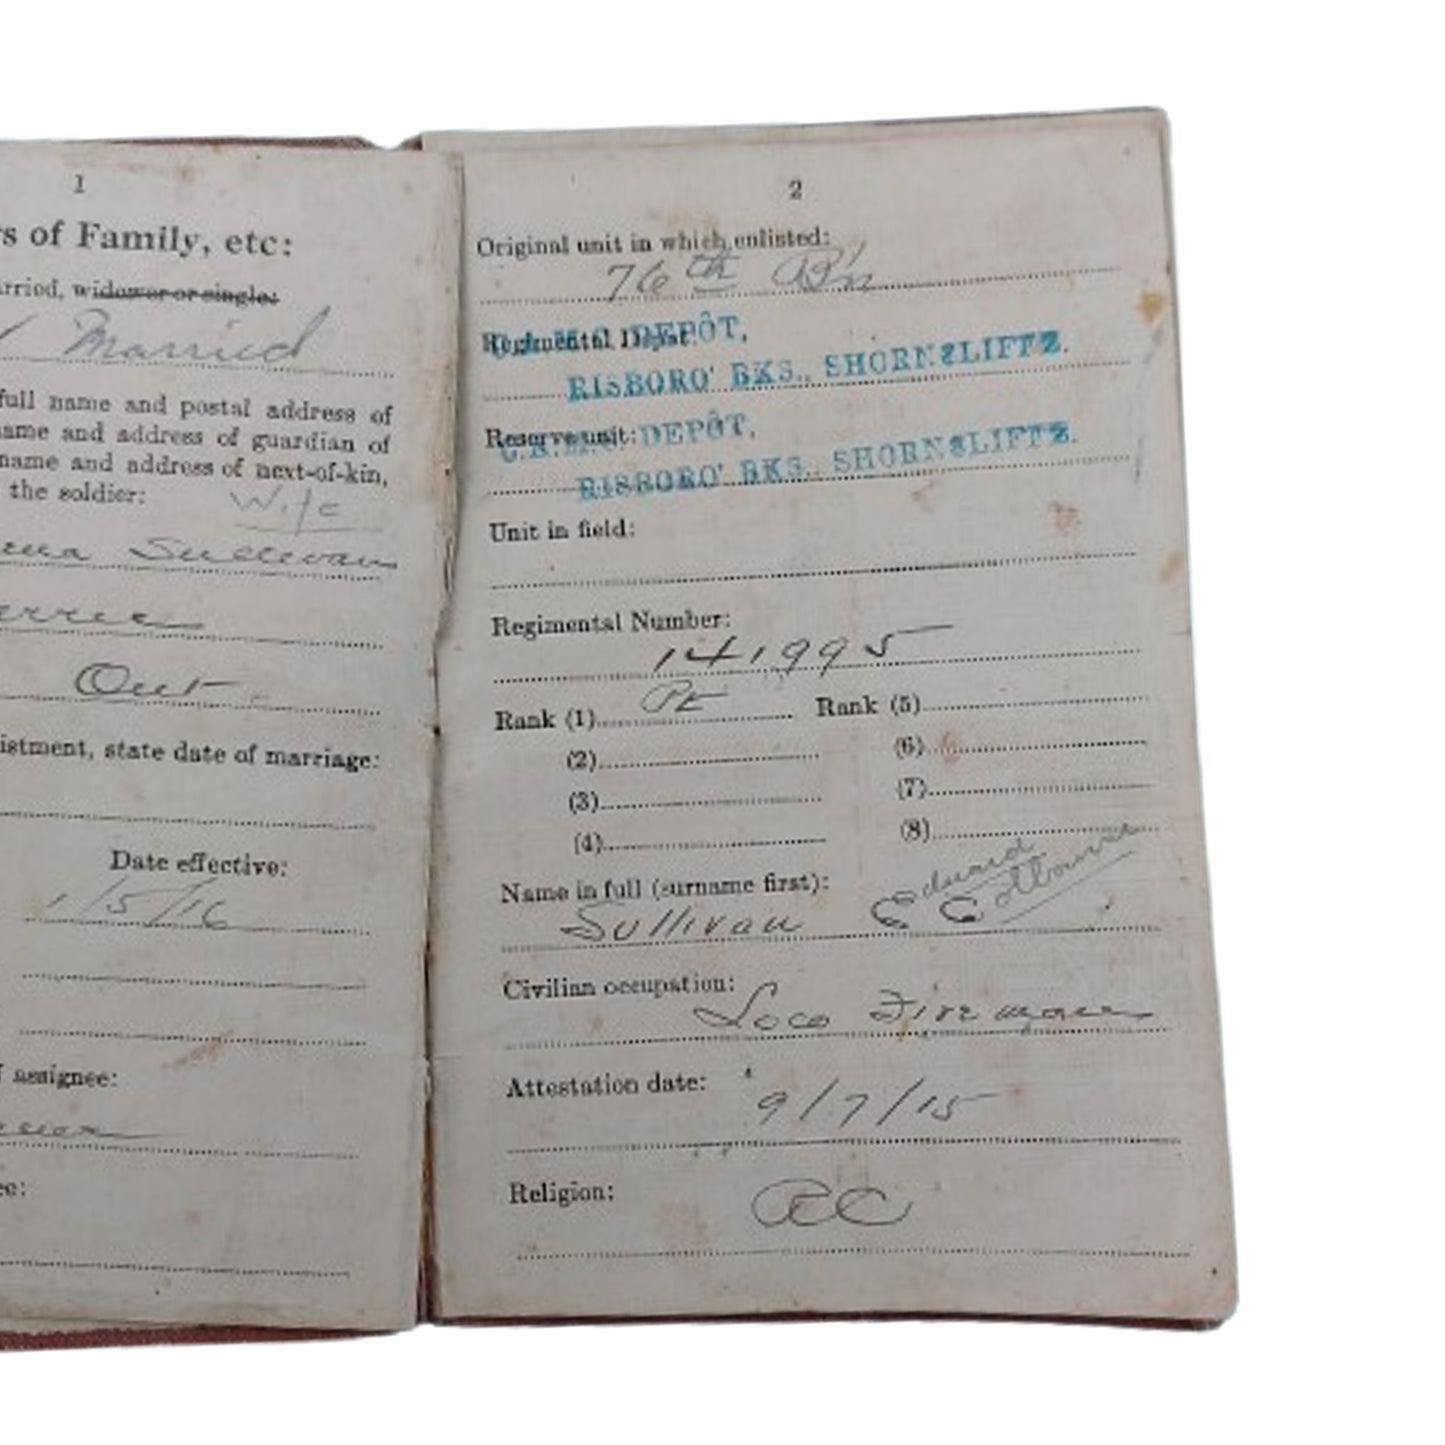 1
s of Family, etc:
rried, widower or single:
Married
full name and postal address of
ame and address of guardian of
name and address of next-of-kin,
the soldier:
Wife
ena Sullivan
Ont.
istment, state date of marriage:
Date effective:
1/5/16
f assignee:
ee:
2
Original unit in which enlisted:
76th B'n
Regimental Depot:
DEPÔT,
RISBORO' BKS., SHORNCLIFFE.
Reserve unit:
DEPÔT,
RISBORO' BKS., SHORNCLIFFE.
Unit in field:
Regimental Number:
141995
Rank (1) Pte Rank (5)
(2) (6)
(3) (7)
(4) (8)
Name in full (surname first):
Sullivan E C
Edward
Civilian occupation:
Loco Fireman
Attestation date:
9/7/15
Religion:
RC